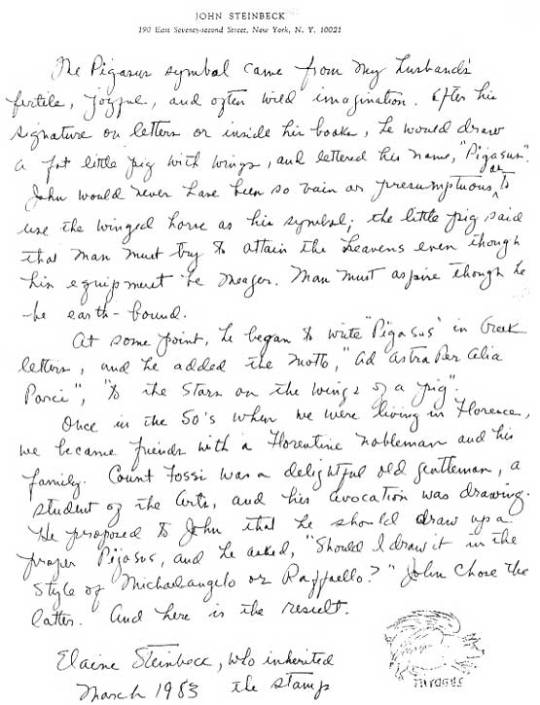 JOHN STEINBECK
190 East Seventy-second Street, New York, N. Y. 10021
The Pigasus symbol came from my husband's
fertile, joyful, and often wild imagination. After his
signature on letters or inside his books, he would draw
a fat little pig with wings, and lettered his name, "Pigasus".
John would never have been so vain or presumptuous as to
use the winged horse as his symbol; the little pig said
that man must try to attain the heavens even though
his equipment be meager. Man must aspire though he
be earth-bound.
At some point, he began to write "Pigasus" in Greek
letters, and he added the motto, "Ad Astra Per Alia
Porci", "to the stars on the wings of a pig".
Once in the 50's when we were living in Florence,
we became friends with a Florentine nobleman and his
family. Count Fossi was a delightful old gentleman, a
student of the arts, and his avocation was drawing.
He proposed to John that he should draw up a
proper Pigasus, and he asked, "Should I draw it in the
style of Michaelangelo or Raffaello?" John chose the
latter. And here is the result.
Elaine Steinbeck, who inherited
March 1983 the stamp